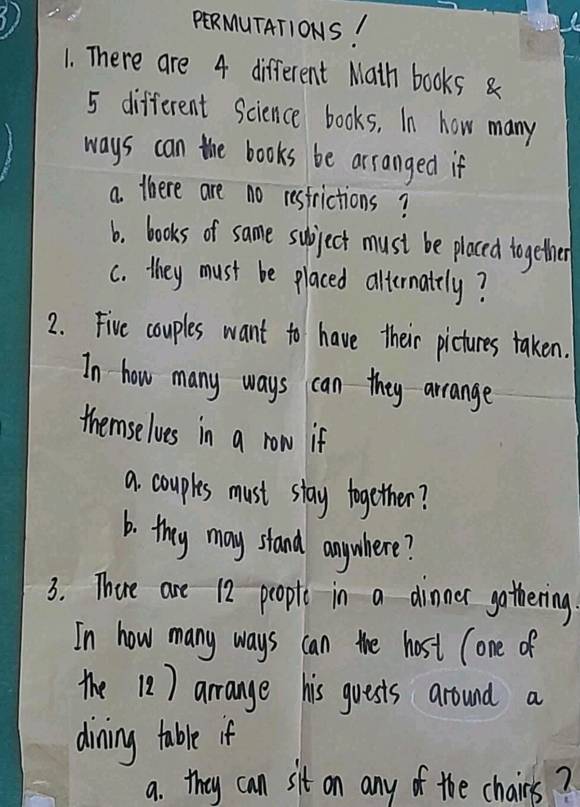 PERMUTATIONS!
1. There are 4 different Math books &
5 different Science books. In how many
ways can the books be arranged if
a. there are no restrictions?
b. books of same subject must be placed together
c. they must be placed alternately?
2. Five couples want to have their pictures taken.
In how many ways can they arrange
themselves in a row if
a. couples must stay together?
b. they may stand anywhere?
3. There are 12 people in a dinner gathering.
In how many ways can the host (one of
the 12) arrange his guests around a
dining table if
a. they can sit on any of the chairs?